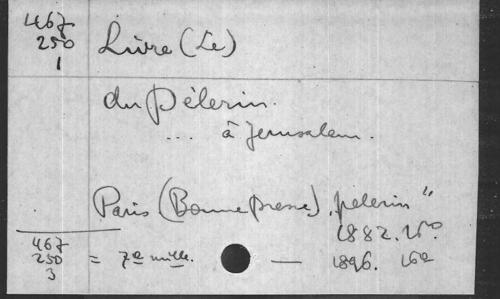 467
250
1
Livre (Le)
du Pèlerin.
... à Jerusalem.
Paris (Bonne Presse), "pèlerin"
1882. 16°
467
250
3
= 7e mille. — 1896. 16°